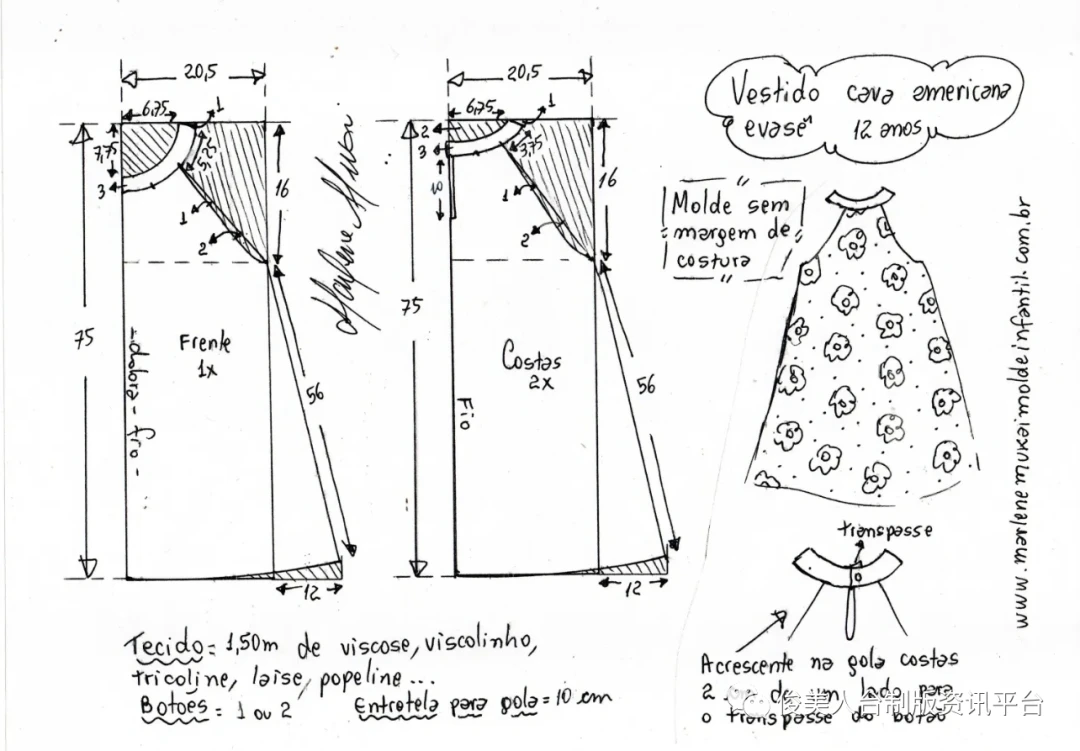 20,5
6,75
1
7,75
5,25
3
16
1
2
75
Frente
1x
-dobra-fio-
56
12
20,5
6,75
1
2
3
3,75
10
16
1
2
75
Costas
2x
Fio
56
12
Vestido cava americana
"evasê" 12 anos
Molde sem
margem de
costura
www.marlenemuxaimoldeinfantil.com.br
transpasse
Acrescente na gola costas
2 de um lado para
o transpasse do botão
Tecido = 1,50m de viscose, viscolinho,
tricoline, laise, popeline...
Botões = 1 ou 2
Entretela para gola = 10 cm
俊美人台制版资讯平台